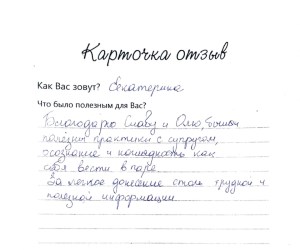 Карточка отзыв
Как Вас зовут? Екатерина
Что было полезным для Вас?
Благодарю Славу и Олю, были
полезны практики с супругом,
осознание и наглядность как
себя вести в паре.
За легкое донесение столь трудной и
полезной информации